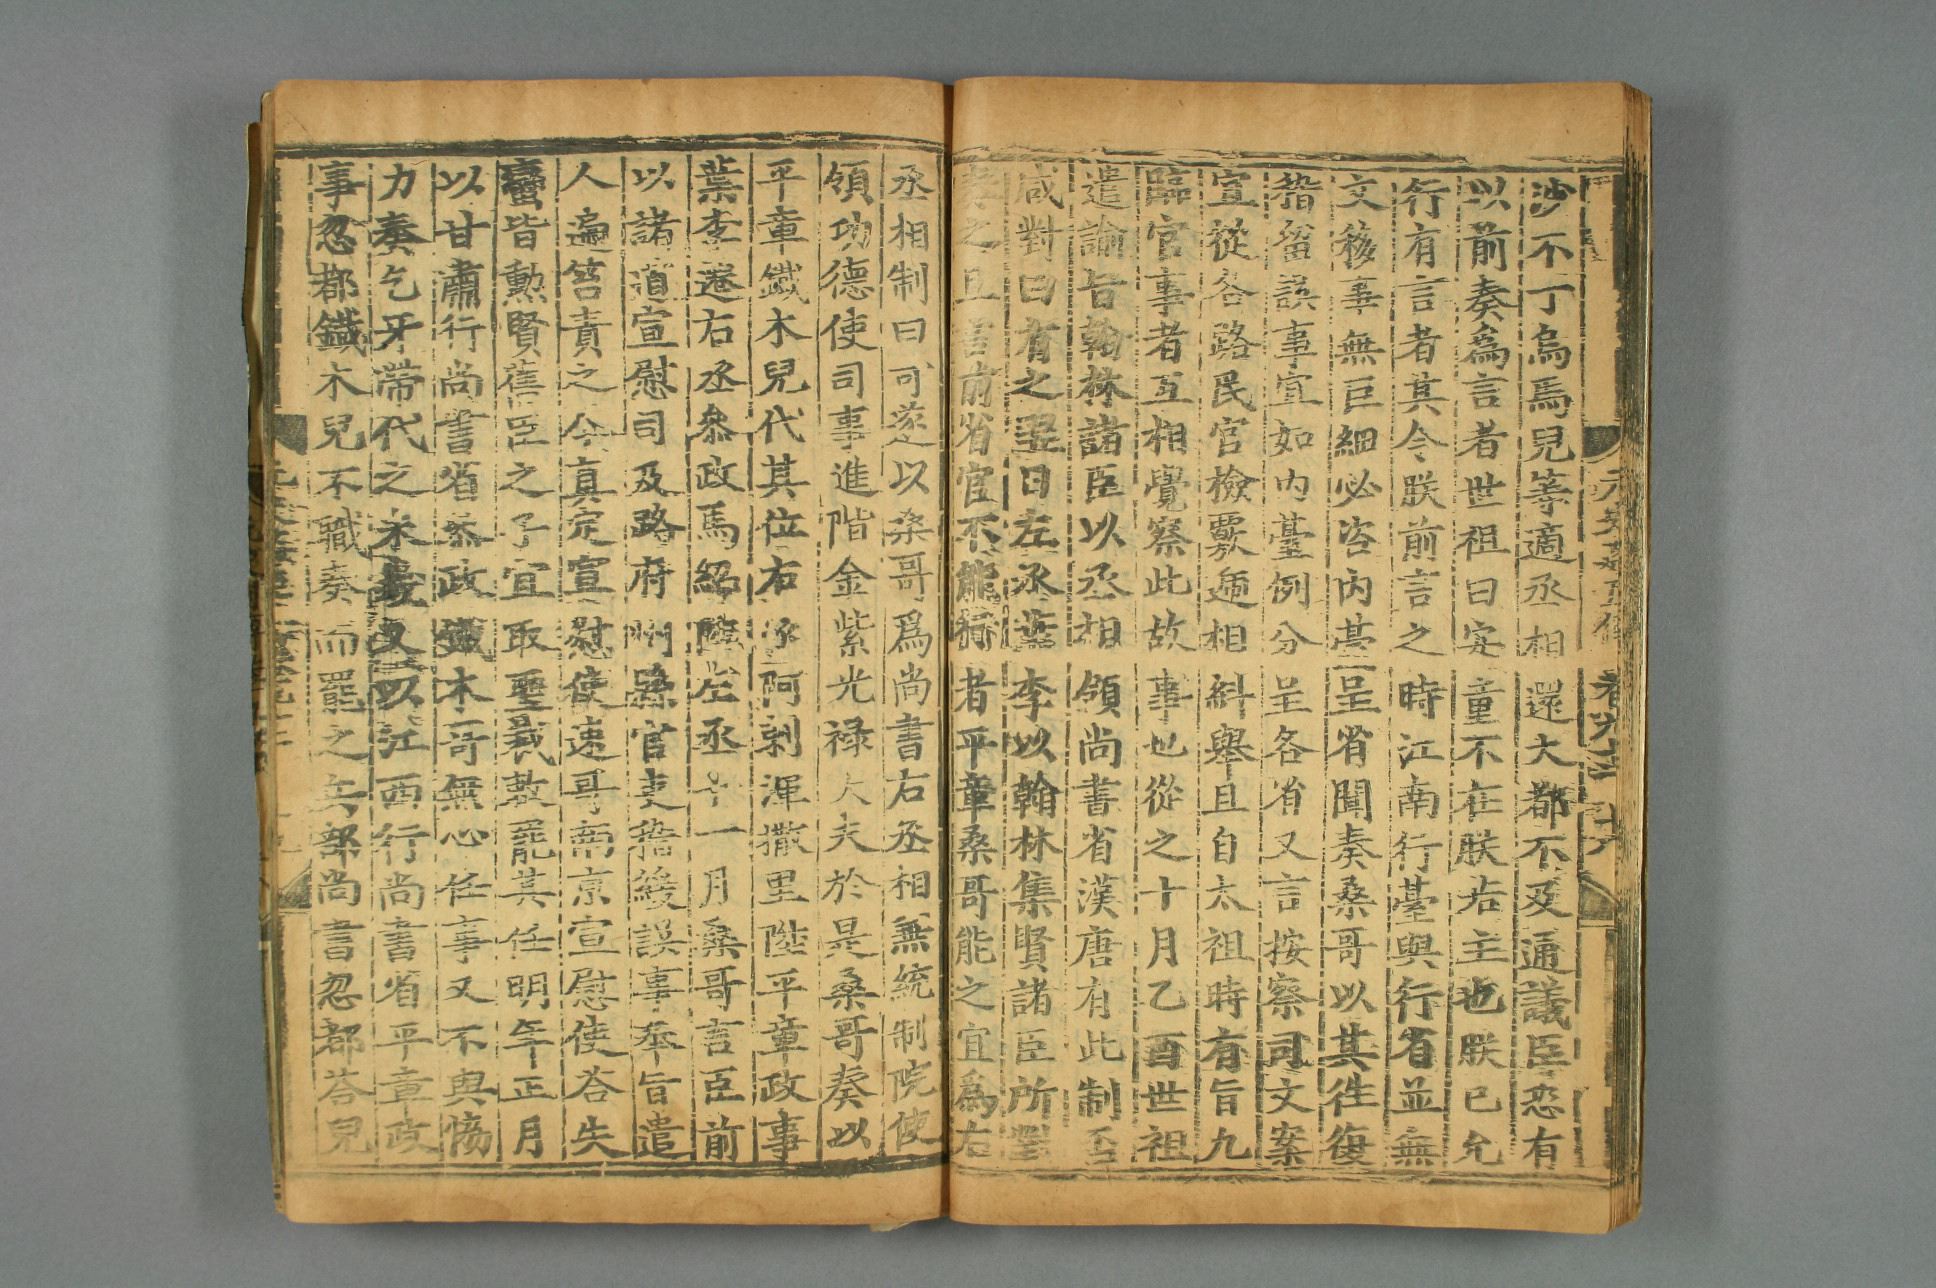 沙不丁烏馬兒等適丞相還大都不及通議臣恐有
以前奏爲言者世祖曰安童不在朕若主也朕已允
行有言者其令朕前言之時江南行臺與行省並無
文移事無巨細必咨內臺呈省聞奏桑哥以其徃復
稽留誤事宜如內臺例分呈各省又言按察司文案
宣從各路民官檢覈逓相糾舉且自太祖時有旨九
臨官事者互相覺察此故事也從之十月乙酉世祖
遣諭旨翰林諸臣以丞相領尚書省漢唐有此制否
咸對曰有之翌日左丞葉李以翰林集賢諸臣所對
奏之且言前省官不能行者平章桑哥能之宜爲右
丞相制曰可遂以桑哥爲尚書右丞相兼統制院使
領功德使司事進階金紫光祿大夫於是桑哥奏以
平章鐵木兒代其位右丞阿剌渾撒里陞平章政事
葉李遷右丞叅政馬紹陞左丞十一月桑哥言臣前
以諸道宣慰司及路府州縣官吏稽緩誤事奉旨遣
人遍笞責之今真定宣慰使速哥南京宣慰使荅失
蠻皆勲賢舊臣之子宜取聖裁敕罷其任明年正月
以甘肅行尚書省叅政鐵木哥無心任事又不與協
力奏乞牙帶代之未幾又以江西行尚書省平章政
事忽都鐵木兒不職奏而罷之兵部尚書忽都荅兒